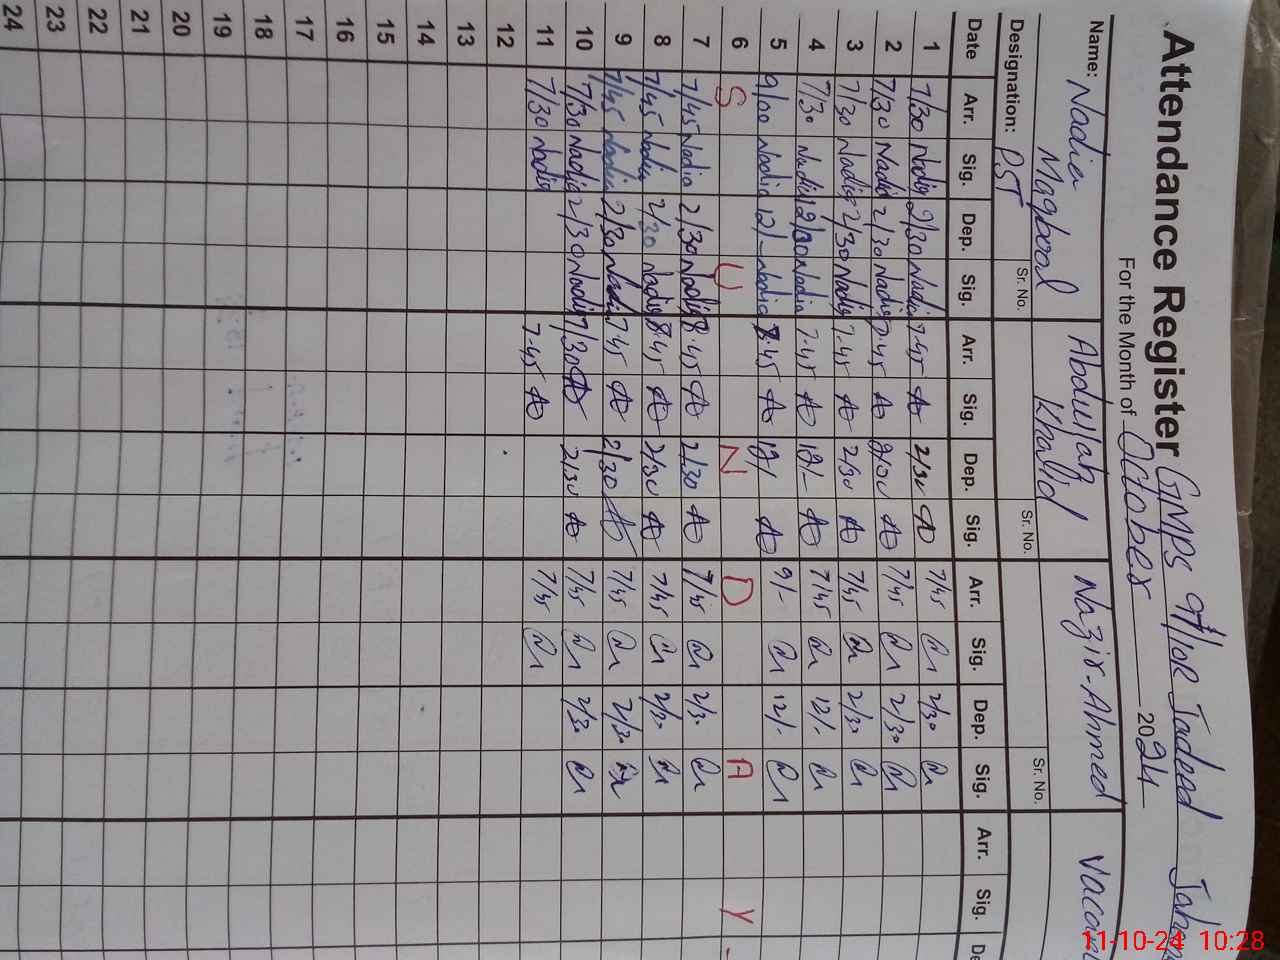 Attendance Register GMPS 9/10R Jadeed
For the Month of October 2024
Name: Nadia Maqbool Abdullah Khalid Nazir-Ahmed
Designation: PST Sr. No. Sr. No. Sr. No.
Date Arr. Sig. Dep. Sig. Arr. Sig. Dep. Sig. Arr. Sig. Dep. Sig. Arr. Sig.
1 7/30 Nadia 2/30 Nadia 7-45 2/30 7/45 2/30
2 7/30 Nadia 2/30 Nadia 7-45 7/45 2/30
3 7/30 Nadia 2/30 Nadia 7-45 2/30 7/45 2/30
4 7/30 Nadia 12/30 Nadia 7-45 12/- 7/45 12/-
5 9/00 Nadia 12/- Nadia 8-45 12/ 9/- 12/-
6 S U N D A Y
7 7/45 Nadia 2/30 Nadia 8-45 2/30 7/45 2/30
8 7/45 Nadia 2/30 Nadia 8-45 2/30 7/45 2/30
9 7/45 Nadia 2/30 Nadia 7-45 2/30 7/45 2/30
10 7/30 Nadia 2/30 Nadia 7/30 2/30 7/45 2/30
11 7/30 Nadia 7-45 7/45
12
13
14
15
16
17
18
19
20
21
22
23
24
11-10-24 10:28